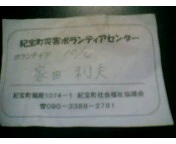 紀宝町災害ボランティアセンター
ボランティア
紀宝町鵜殿1074-1 紀宝町社会福祉協議会
☎090-3388-2781